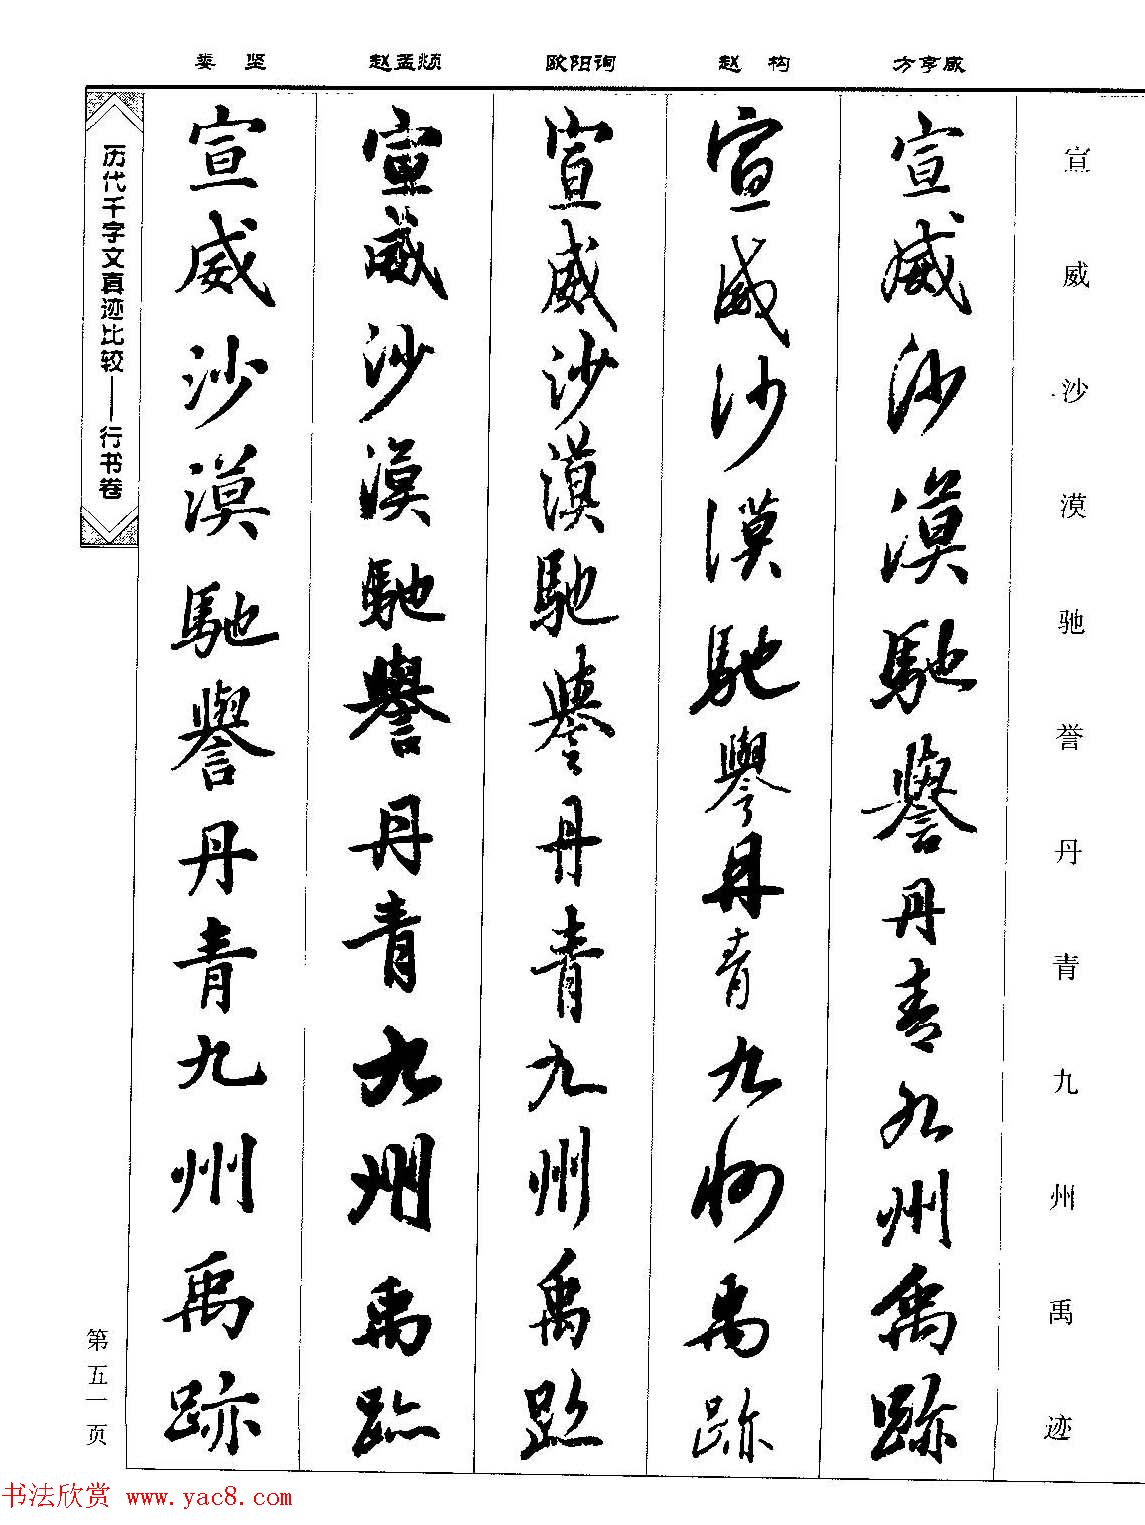 娄坚 赵孟頫 欧阳询 赵构 方亨咸
宣威沙漠驰誉丹青九州禹迹
宣威沙漠馳譽丹青九州禹跡
宣威沙漠馳譽丹青九州禹跡
宣威沙漠馳譽丹青九州禹跡
宣威沙漠馳譽丹青九州禹跡
宣威沙漠馳譽丹青九州禹跡
历代千字文真迹比较——行书卷
第五一页
书法欣赏 www.yac8.com